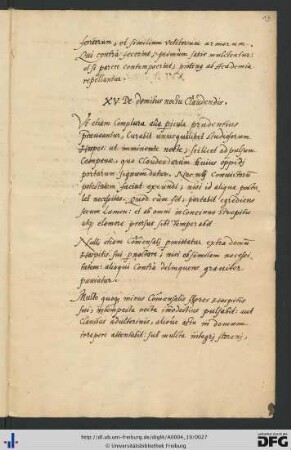 sclopetorum, vel similium vetitorum armorum.
Qui contra fecerint, primum satis mulctentur:
et si parere contempserint, prorsus ab Academia
repellantur.
XV De domibus noctu Claudendis.
Ut etiam Complura alia pericula prudentius
praecaveantur, Curabit unusquilibet studiosorum
Hospes: ut imminente nocte, scilicet ad pulsum
Campanae, quo claudendarum huius oppidi
portarum signum datur. Nec ulli Convictorum
potestatem faciat exeundi, nisi id aliqua postulet
necessitas. Quod cum fit, portabit egrediens
secum Lumen: et ab omni inconcinno strepitu
atque clamore prorsus sibi Temperabit
Nulli etiam Commensali permittatur extra domum
Hospitis sui pernoctare, nisi ob similem necessitatem:
alioqui Contra delinquens graviter
puniatur.
Multo quoque minus Commensalis fores Hospitis
sui, intempesta nocte immodestius pulsabit: aut
Clavibus adulterinis, aliove astu in domum
irrepere attentabit: sub mulcta integri floreni,
http://dl.ub.uni-freiburg.de/diglit/A0004_19/0027
© Universitätsbibliothek Freiburg
DFG